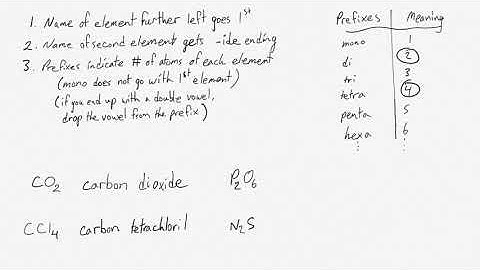 1. Name of element further left goes 1st
2. Name of second element gets -ide ending
3. Prefixes indicate # of atoms of each element
(mono does not go with 1st element)
(if you end up with a double vowel,
drop the vowel from the prefix)
Prefixes Meaning
mono 1
di 2
tri 3
tetra 4
penta 5
hexa 6
⋮ ⋮
CO₂ carbon dioxide P₂O₆
CCl₄ carbon tetrachloril N₂S